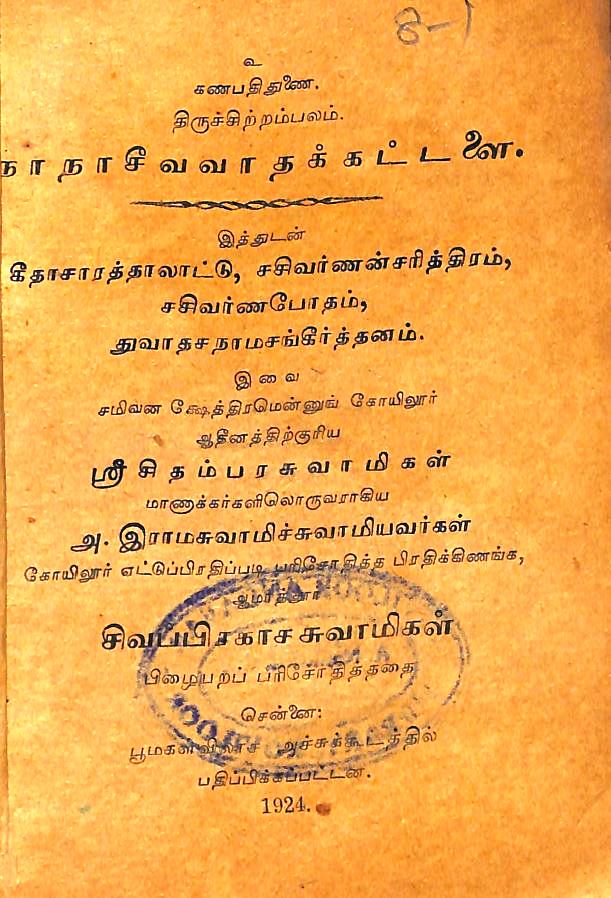 8-1
உ
கணபதிதுணை.
திருச்சிற்றம்பலம்.
நாநாசீவவாதக்கட்டளை.
இத்துடன்
கீதாசாரத்தாலாட்டு, சசிவர்ணன்சரித்திரம்,
சசிவர்ணபோதம்,
துவாதசநாமசங்கீர்த்தனம்.
இவை
சமிவன க்ஷேத்திரமென்னுங் கோயிலூர்
ஆதீனத்திற்குரிய
ஸ்ரீ சிதம்பரசுவாமிகள்
மாணாக்கர்களிலொருவராகிய
அ. இராமசுவாமிச்சுவாமியவர்கள்
கோயிலூர் எட்டுப்பிரதிப்படி பரிசோதித்த பிரதிக்கிணங்க,
ஆமாத்தூர்
சிவப்பிரகாசசுவாமிகள்
பிழையறப் பரிசோதித்ததை
சென்னை:
பூமகள்விலாச அச்சுக்கூடத்தில்
பதிப்பிக்கப்பட்டன.
1924.